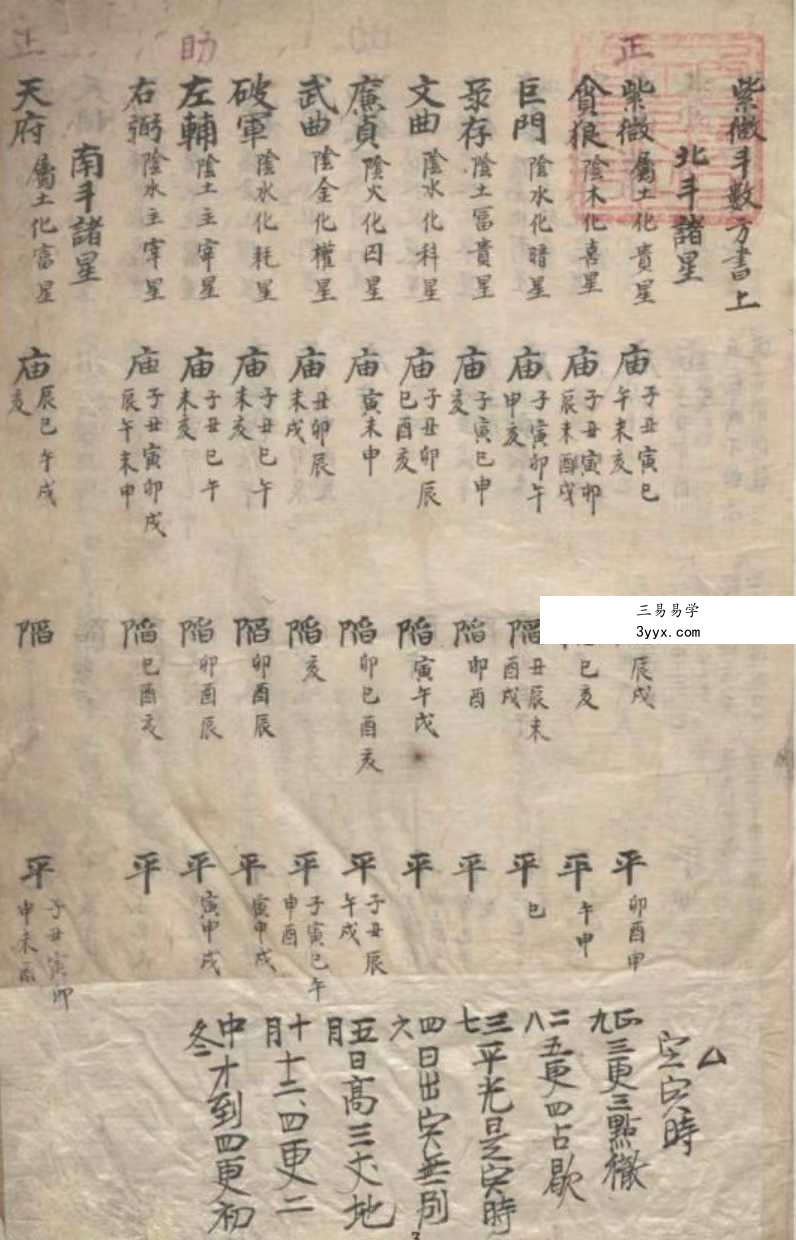 紫微斗數方書上
北斗諸星
正
紫微屬土化貴星
廟子丑寅巳
午未亥
辰戌
平卯酉申
貪狼陰木化喜星
庙子丑寅卯
辰未酉戌
巳亥
平午申
巨門陰水化暗星
庙子寅卯午
申亥
陷丑辰未
酉戌
平巳
祿存陰土富貴星
庙子寅巳申
亥
陷卯酉
平
文曲陰水化科星
庙子丑卯辰
巳酉亥
陷寅午戌
平
廉貞陰火化囚星
庙寅未申
陷卯巳酉亥
平子丑辰
午戌
武曲陰金化權星
庙丑卯辰
未戌
陷亥
平子寅巳午
申酉
破軍陰水化耗星
庙子丑巳午
未亥
陷卯酉辰
平寅申戌
助
左輔陰土主宰星
庙子丑巳午
未亥
陷卯酉辰
平寅申戌
右弼陰水主宰星
庙子丑寅卯戌
辰午未申
陷巳酉亥
平
南斗諸星
天府屬土化富星
庙辰巳午戌
亥
陷
平子丑寅卯
申未酉
定寅時
正九三更三點徹
二八五更四占歇
三七平光是寅時
四六日出寅無別
五月日高三丈地
十月十二四更二
中冬才到四更初
三易易学
3yyx.com